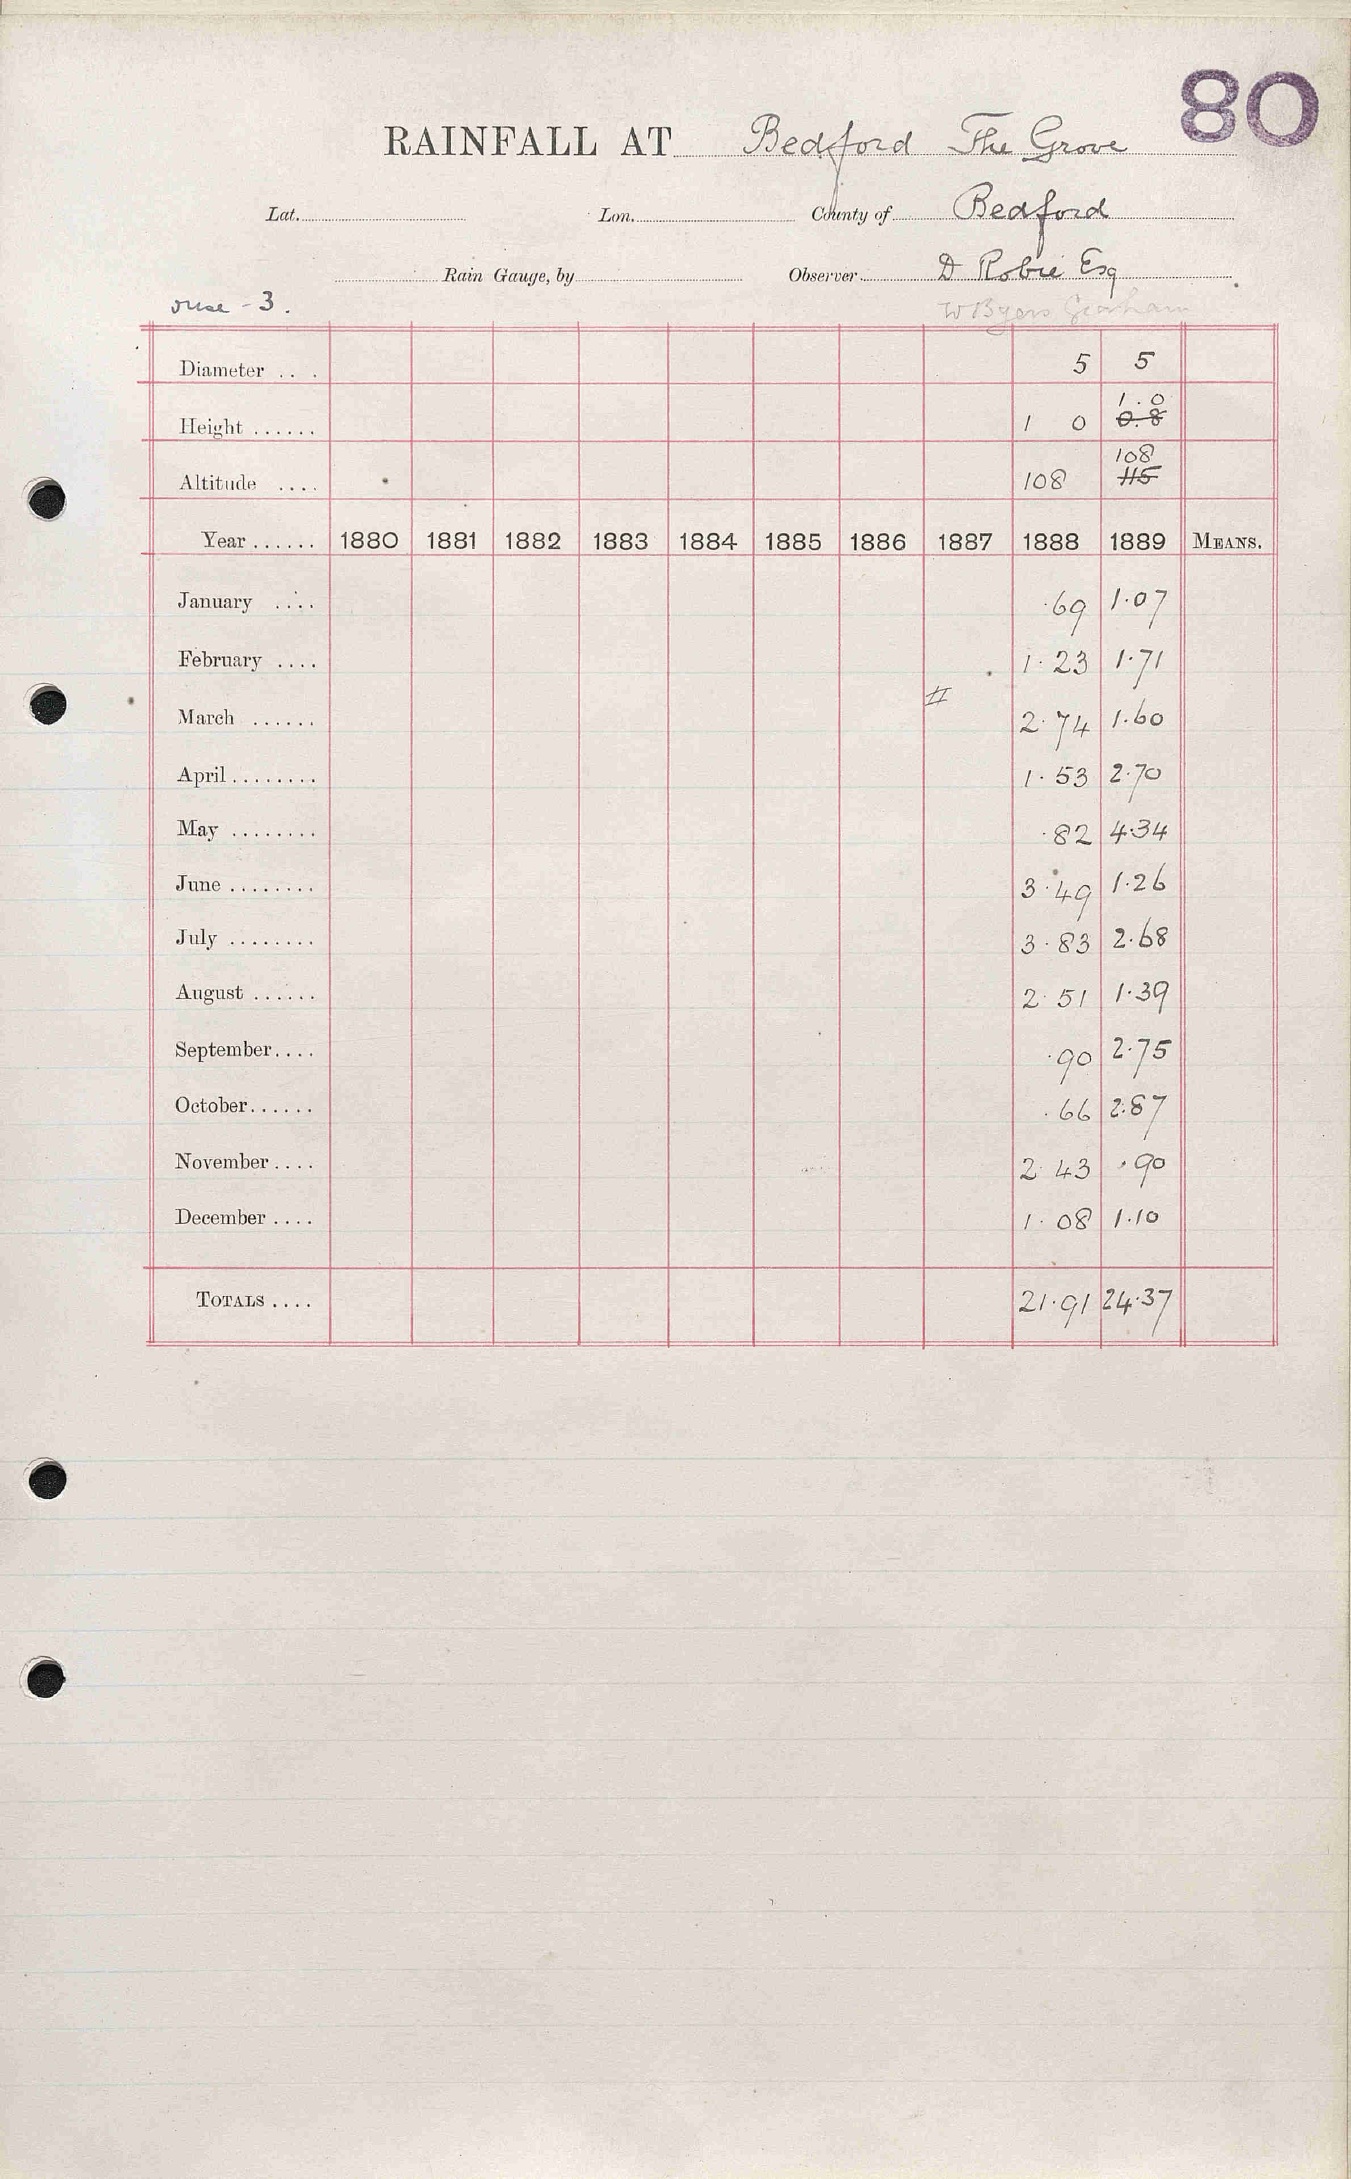 80
RAINFALL AT Bedford The Grove
Lat. Lon. County of Bedford
Rain Gauge, by Observer D Robie Esq
Ouse - 3.
W Byers Graham
Diameter . . . 5 5
1.0
Height . . . . . . 1 0 0.8
108
Altitude . . . . 108 115
Year . . . . . . 1880 1881 1882 1883 1884 1885 1886 1887 1888 1889 MEANS.
January . . . . .69 1.07
February . . . . 1.23 1.71
March . . . . . . # 2.74 1.60
April . . . . . . . . 1.53 2.70
May . . . . . . . . .82 4.34
June . . . . . . . . 3.49 1.26
July . . . . . . . . 3.83 2.68
August . . . . . . 2.51 1.39
September . . . . .90 2.75
October . . . . . . .66 2.87
November . . . . 2.43 .90
December . . . . 1.08 1.10
TOTALS . . . . 21.91 24.37